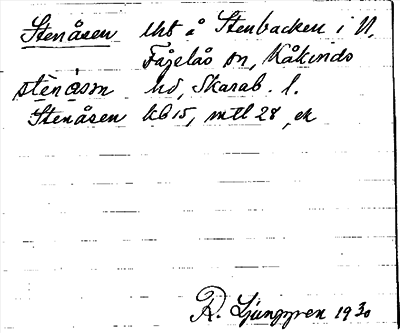 Stenåsen lht å Stenbacken i N,
Fågelås sn, Kåkinds
stènåsən hd, Skarab. l.
Stenåsen kb 15, mtl 28, ek
R. Ljunggren 1930